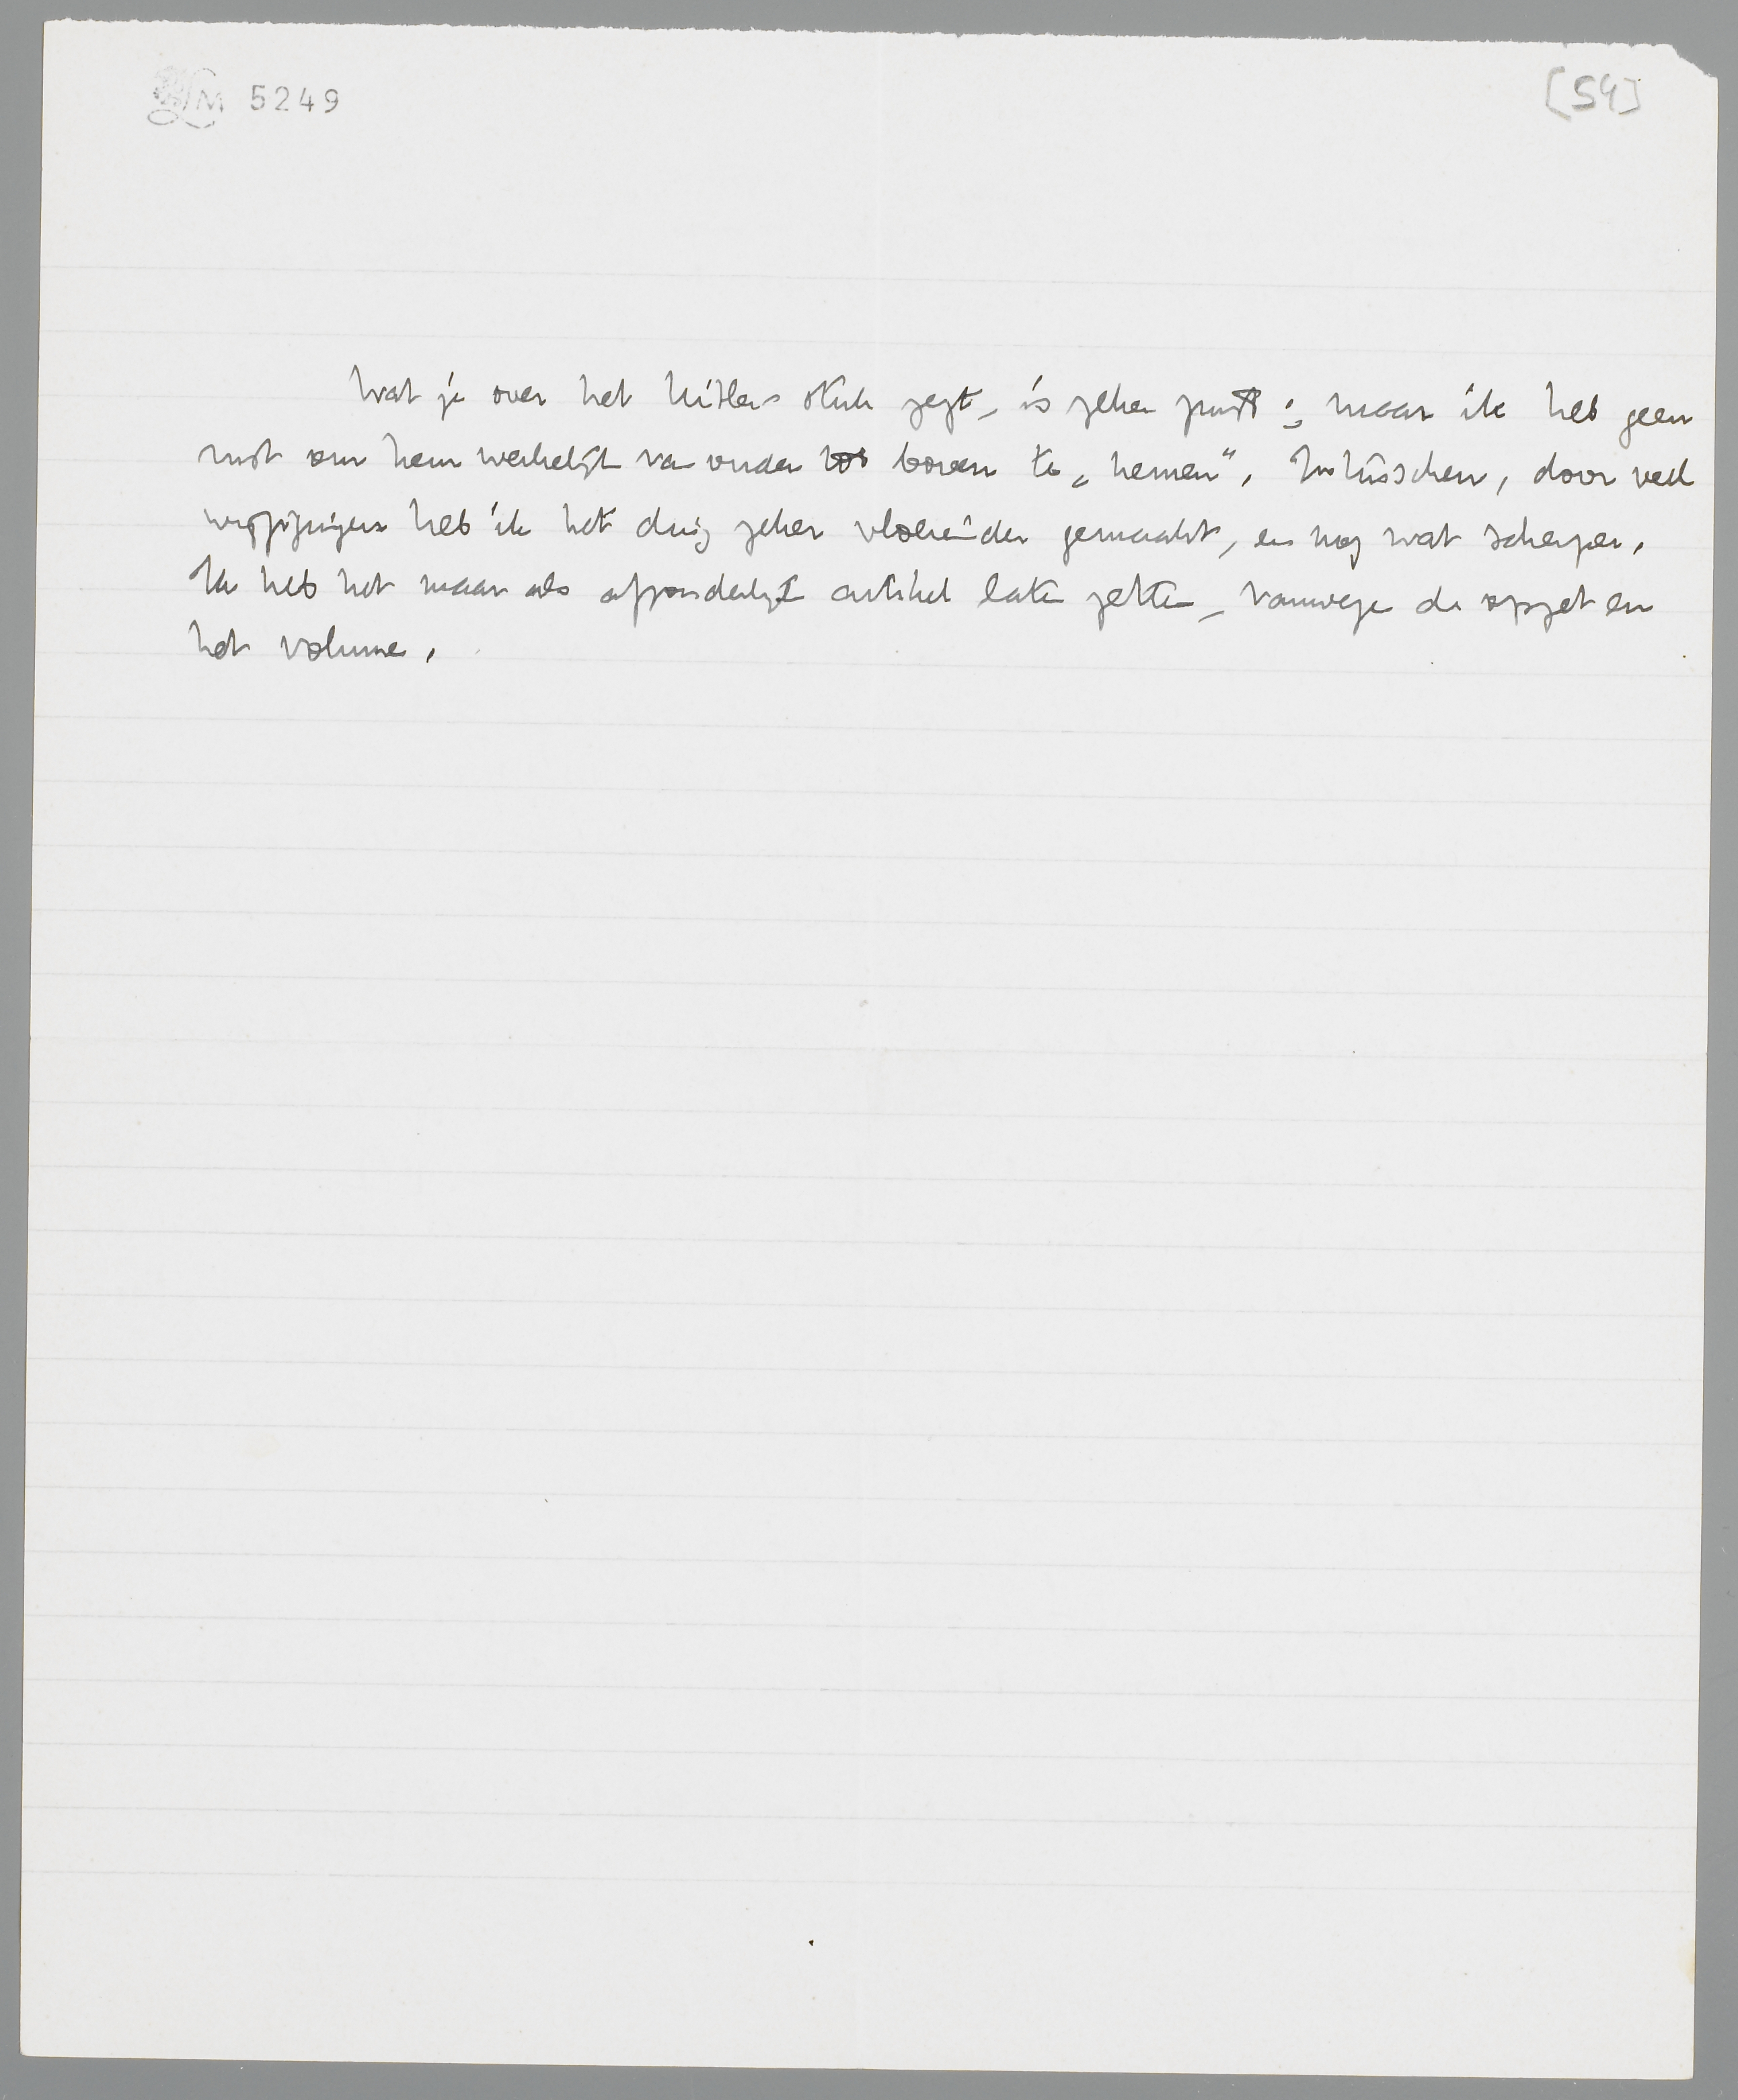 LM 5249
[54]
Wat je over het Hitler-stuk zegt, is zeker juist; maar ik heb geen
rust om hem werkelijk van onder tot boven te „nemen”. Intusschen, door veel
wijzigingen heb ik het ding zeker vloeiender gemaakt, en nog wat scherper.
Ik heb het maar als afzonderlijk artikel laten zetten, vanwege de opzet en
het volume.